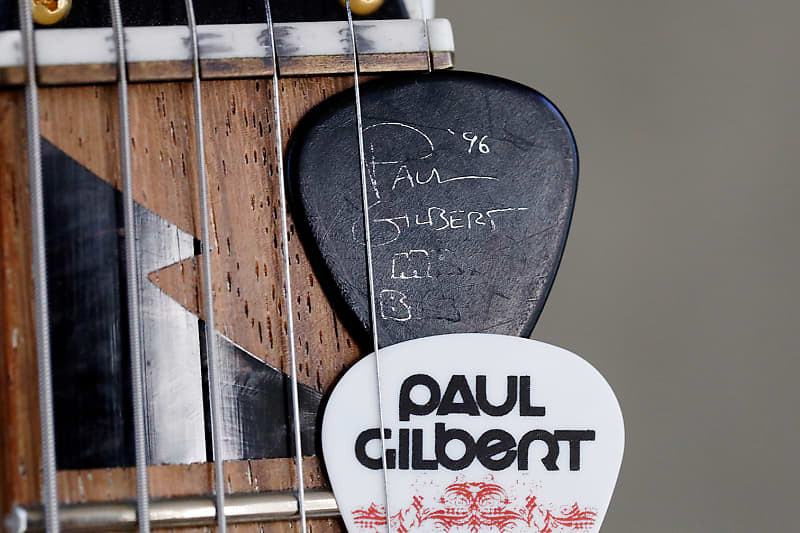 '96
PAUL
GILBERT
M
B
PAUL
GILBERT